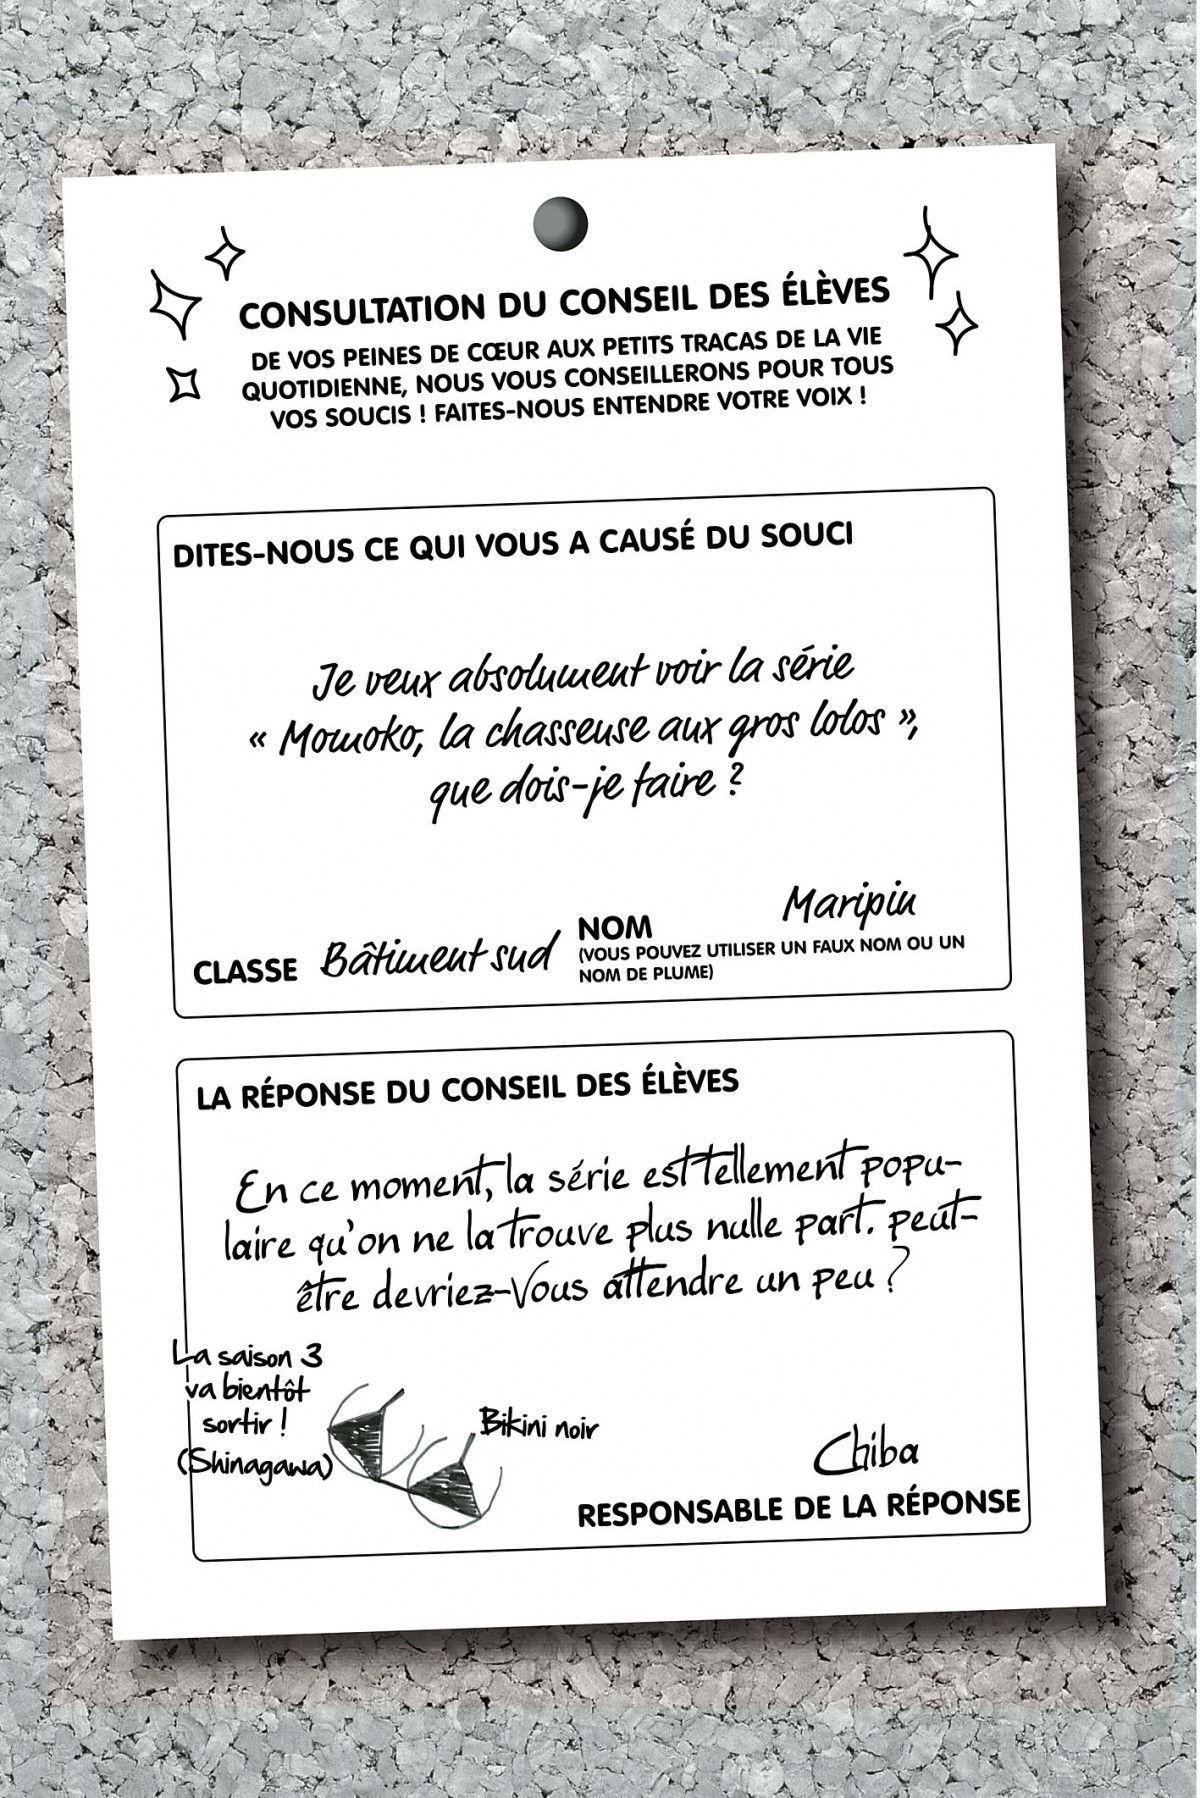 CONSULTATION DU CONSEIL DES ÉLÈVES
DE VOS PEINES DE CŒUR AUX PETITS TRACAS DE LA VIE
QUOTIDIENNE, NOUS VOUS CONSEILLERONS POUR TOUS
VOS SOUCIS ! FAITES-NOUS ENTENDRE VOTRE VOIX !
DITES-NOUS CE QUI VOUS A CAUSÉ DU SOUCI
Je veux absolument voir la série
« Momoko, la chasseuse aux gros lolos »,
que dois-je faire ?
CLASSE Bâtiment sud
NOM Maripin
(VOUS POUVEZ UTILISER UN FAUX NOM OU UN
NOM DE PLUME)
LA RÉPONSE DU CONSEIL DES ÉLÈVES
En ce moment, la série est tellement popu-
laire qu'on ne la trouve plus nulle part. peut-
être devriez-vous attendre un peu ?
La saison 3
va bientôt
sortir !
(Shinagawa)
Bikini noir
Chiba
RESPONSABLE DE LA RÉPONSE